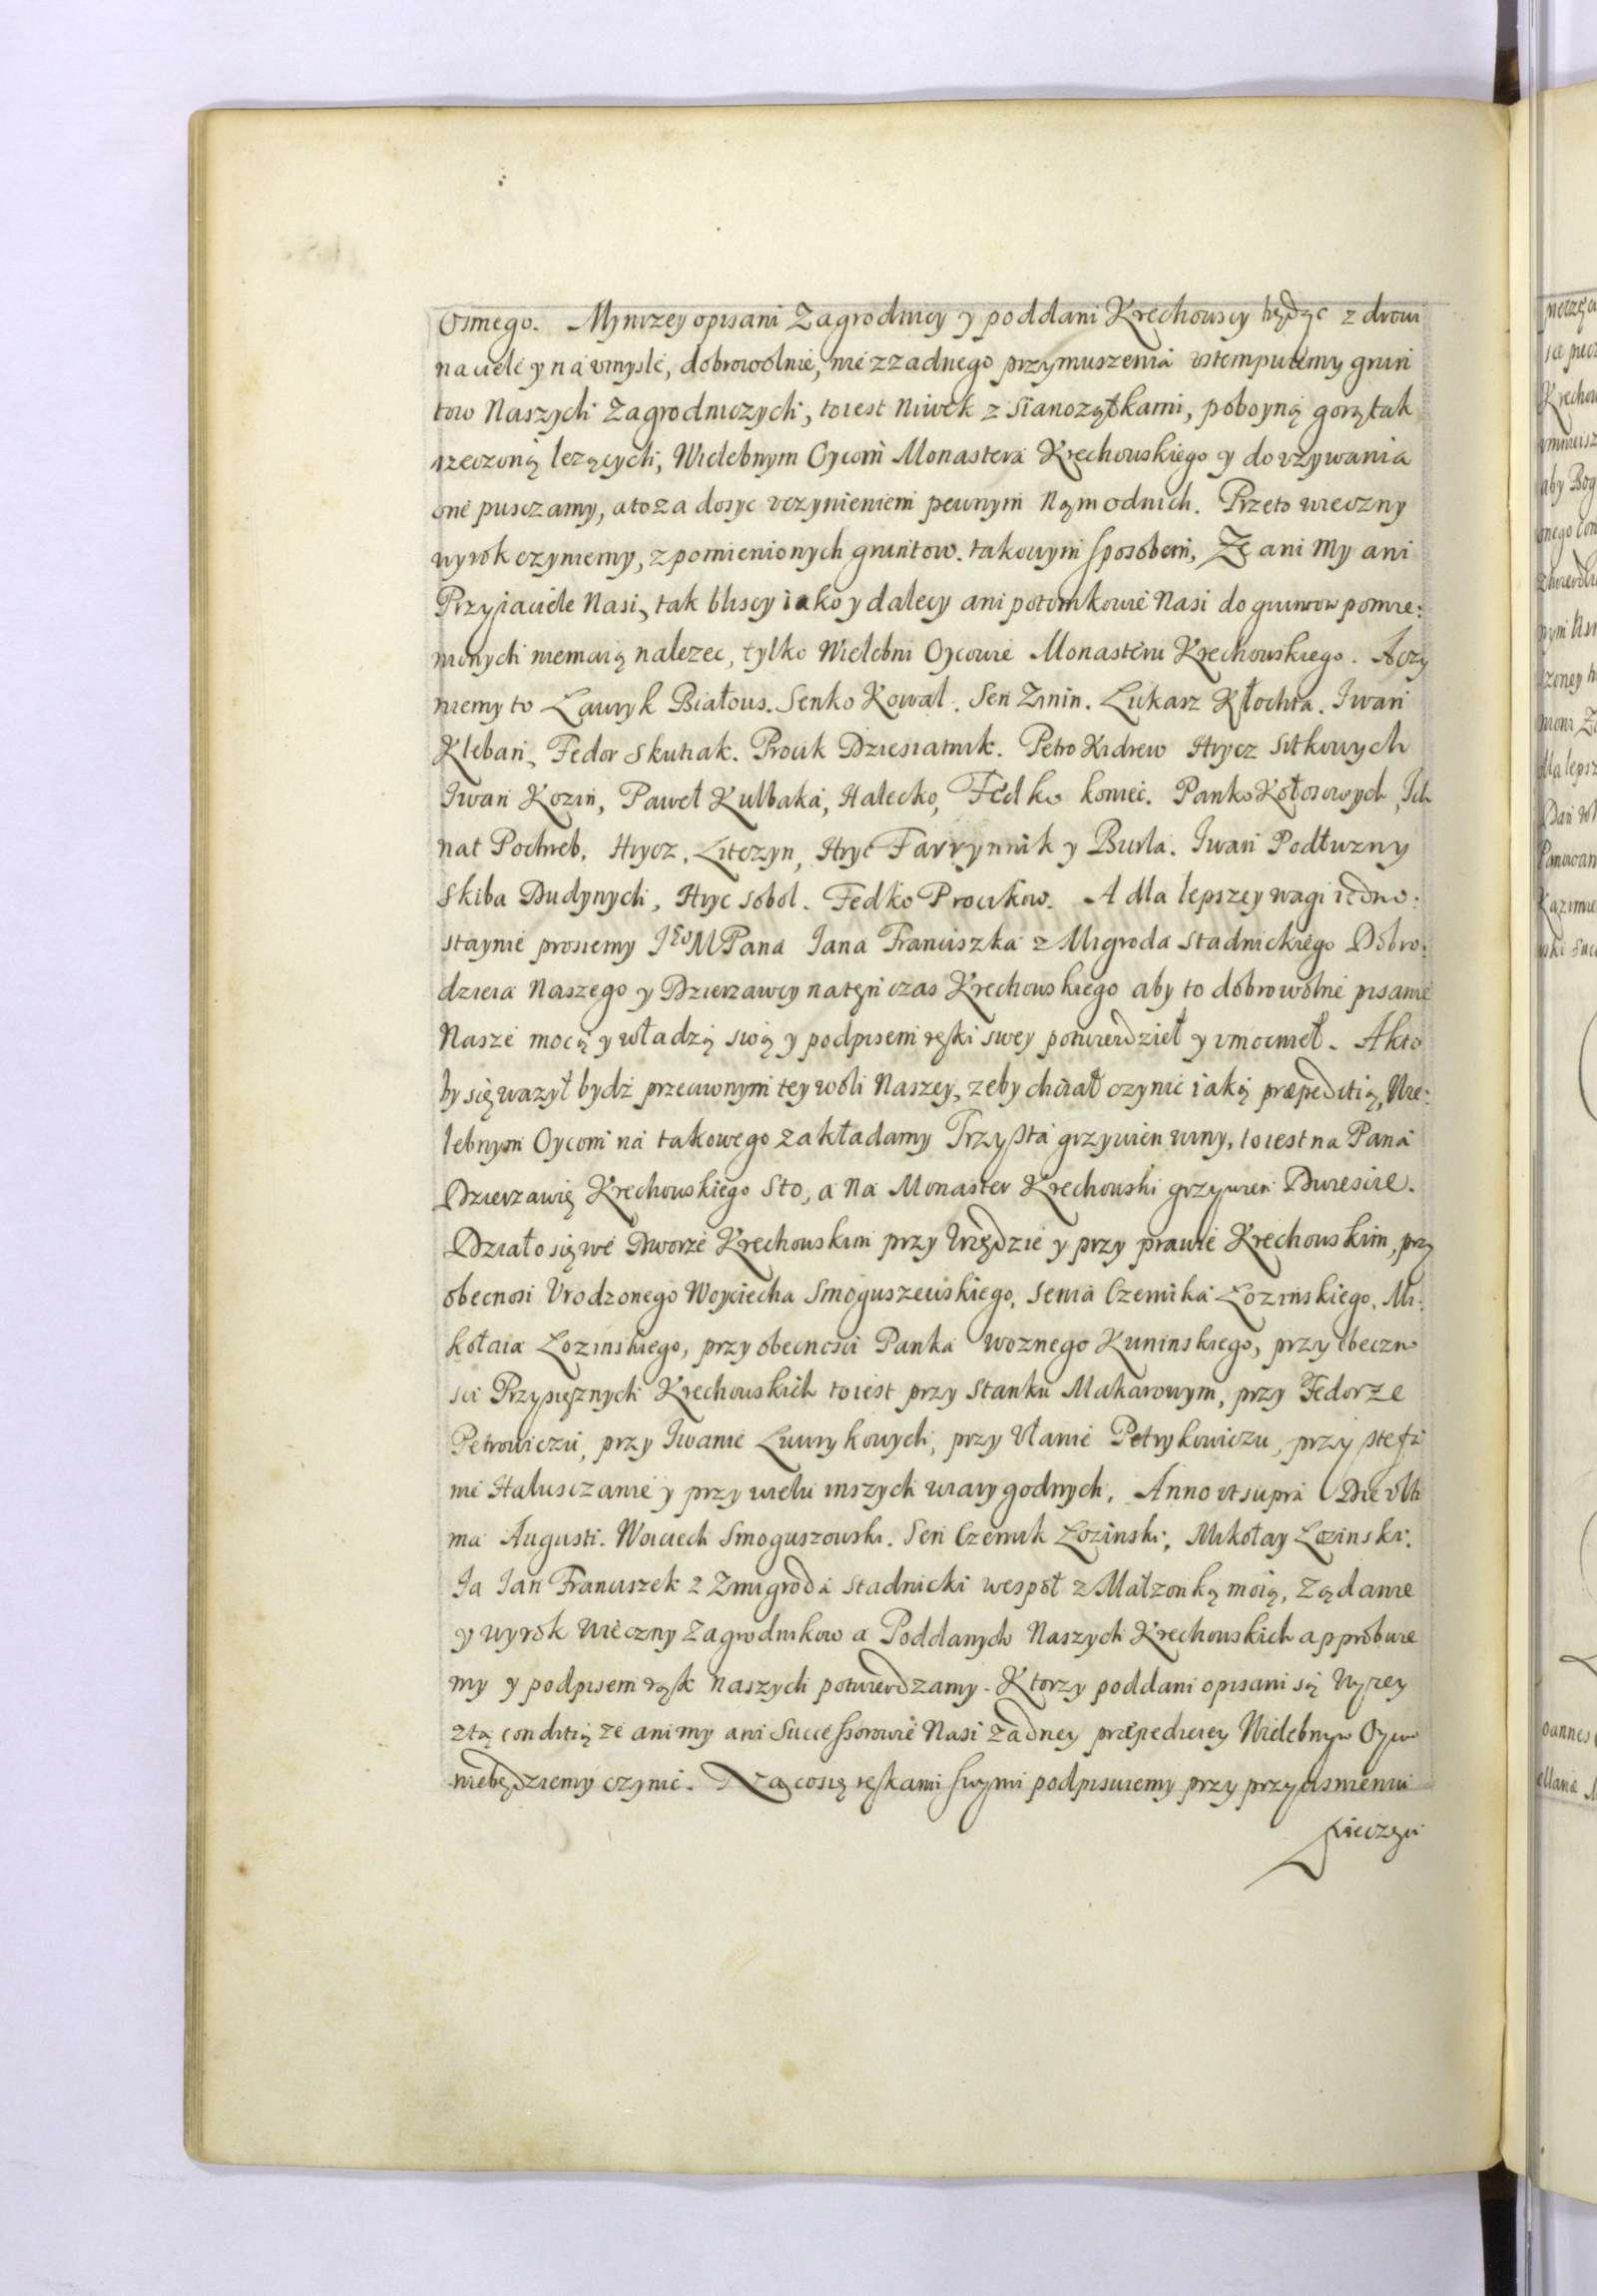 Osmego. My niżey opisani Zagrodnicy y poddani Krechowscy będąc zdrowi
na ciele y na vmysle, dobrowolnie, nie z zadnego przymuszenia vstempuiemy grun
tow Naszych Zagrodniczych, toiest Niwek z sianozątkami, pobojną gorą tak
rzeczoną lezących, Wielebnym Oycom Monastera Krechowskiego y do vzywania
one puszczamy, a to za dosyc vczynieniem pewnym Nam od nich. Przeto wieczny
wyrok czyniemy, z pomienionych gruntow. takowym sposobem, Ze ani My ani
Przyiaciele Nasi, tak bliscy iako y dalecy ani potomkowie Nasi do gruntow pomie:
nionych niemaią nalezec, tylko Wielebni Oycowie Monasteru Krechowskiego. A czy
niemy to Lawryk Białous. Senko Kowal. Sen Zinin. Lukasz Kłochta. Iwan
Kleban, Fedor Skutiak. Procik Dziesiatnik. Petro Kidrew Hrycz Sitkowych
Iwan Kozin, Paweł Kulbaka, Halecko, Fedko koniec. Panko Kołosowych, Ich
nat Pochreb. Hrycz. Litczyn, Hryc Farrynnik y Burla. Iwan Podłuzny
Skiba Dudynych, Hryc Sobol. Fedko Procikow. A dla lepszey wagi iedno:
staynie prosiemy JEo M Pana Jana Franciszka z Migroda Stadnickiego Dobro:
dzieia Naszego y Dzierzawcy na ten czas Krechowskiego aby to dobrowolne pisanie
Nasze mocą y władzą swą y podpisem ręki swey potwierdzieł y vmocnieł. A kto
by się wazył bydz przeciwnym tey woli Naszey, zeby chciał czynic iaką præpeditią, Wie:
lebnym Oycom na takowego zakładamy Trzysta grzywien winy, toiest na Pana
Dzierzawię Krechowskiego Sto, a Na Monaster Krechowski grzywien Dwiescie.
Działo się we Dworze Krechowskim przy Urzędzie y przy prawie Krechowskim, przy
obecnosi Vrodzonego Woyciecha Smoguszewskiego, Senia Czernika Łozinskiego, Mi:
kołaia Łozinskiego, przy obecnosci Panka woznego Kuninskiego, przy obeczno
sci Przysięznych Krechowskich toiest przy Stanku Makarowym, przy Fedorze
Petrowiczu, przy Iwanie Lawrykowych, przy Vłanie Petrykowiczu, przy Stefa
nie Halusczanie y przy wielu inszych wiary godnych. Anno vt supra Die vlti
ma Augusti. Woiciech Smoguszowski. Sen Czernik Łozinski, Mikołay Łozinski.
Ja Jan Franciszek z Zmigroda Stadnicki wespoł z Małzonką moią, Ządanie
y wyrok Wieczny Zagrodnikow a Poddanych Naszych Krechowskich approbuie
my y podpisem rąk Naszych potwierdzamy. Ktorzy poddani opisani są Wyzey
z tą conditią ze ani my ani Successorowie Nasi zadney præpedicięy Wielebnym Oycom
niebędziemy czynic. Na co się rękami swymi podpisuiemy przy przycisnieniu
pieczęci